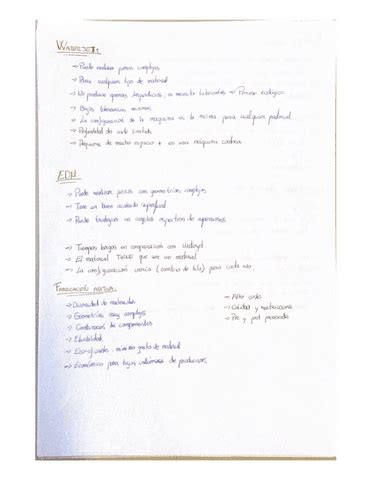 WATERJET:
→ Puede realizar piezas complejas
→ Para cualquier tipo de material
→ No produce quemas, ni necesita lubricantes → Proceso ecológico
→ Bajas tolerancias
→ La configuración de la máquina es la misma para cualquier material
→ Profundidad de corte limitada
→ Requiere de mucho espacio + es una máquina
EDM.
→ Puede realizar piezas con geometrías complejas
→ Tiene un buen acabado superficial
→ Puede trabajar
→ Tiempos largos en comparación con waterjet
→ El material TIENE que ser un material
→ La configuración única (cambio de) para cada uso.
FABRICACIÓN ADITIVA:
→ Diversidad de materiales
→ Geometrías muy complejas
→ Combinación de componentes
→ Flexibilidad
→ Eco-eficiente, mínimo gasto de material
→ Económico para bajos volúmenes de producción
→ Alto coste
→ Calidad y
→ Pre y post procesado